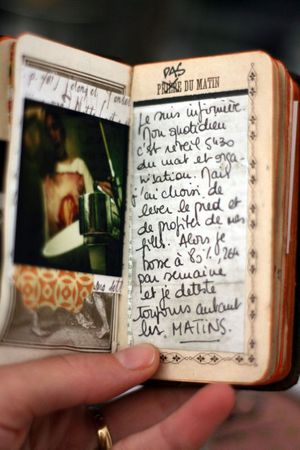 PAS
PRIÈRE DU MATIN
Je suis infirmière.
Mon quotidien
c'est réveil 5h30
du mat et orga-
nisation. Mais
j'ai choisi de
lever le pied et
de profiter de mes
filles. Alors je
bosse à 85%, 26h
par semaine
et je déteste
toujours autant
les MATINS.